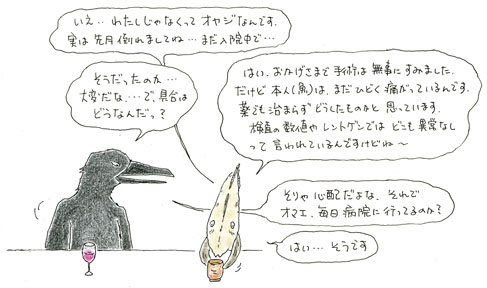 いえ… わたしじゃなくって オヤジなんです.
実は先月倒れましてね… まだ入院中で…
そうだったのか…
大変だな、… で、具合は
どうなんだっ？
はい. おかげさまで 手術は 無事にすみました.
だけど 本人(鳥)は、まだひどく痛がっているんです.
薬でも治まらず どうしたものかと 思っています.
検査の数値や レントゲンでは どこも異常なし
って 言われているんですけどね〜
そりゃ 心配だよな、それで
オマエ、毎日 病院に行ってるのか？
はい… そうです